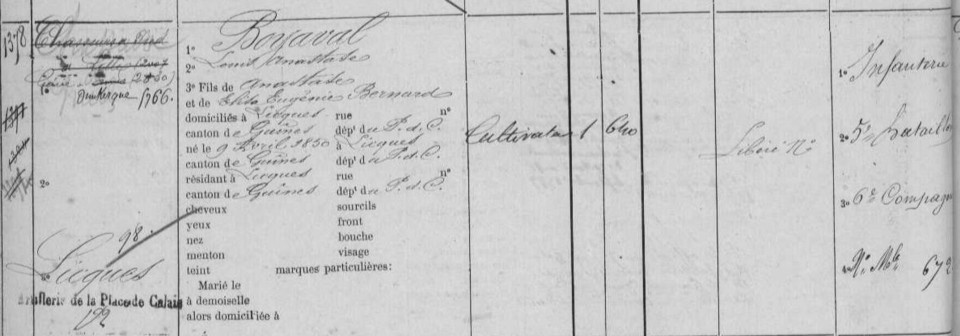 1378
Lille (2007
(2850)
1° Dunkerque 1766.
2°
98.
3° Licques
Artillerie de la Place de Calais
122
1° Boyaval
2° Louis Anastase
3° Fils de Anastase
et de Elida Eugénie Bernard
domiciliés à Licques rue n°
canton de Guînes dépt du P. d. C.
né le 9 Avril 1850 à Licques
canton de Guînes dépt du P. d. C.
résidant à Licques rue n°
canton de Guînes dépt du P. d. C.
cheveux sourcils
yeux front
nez bouche
menton visage
teint marques particulières:
Marié le
à demoiselle
alors domiciliée à
Cultivateur 1 640
Libéré N°
1° Infanterie
2° 5e bataillon
3° 6e Compagnie
4° N° Mle 672